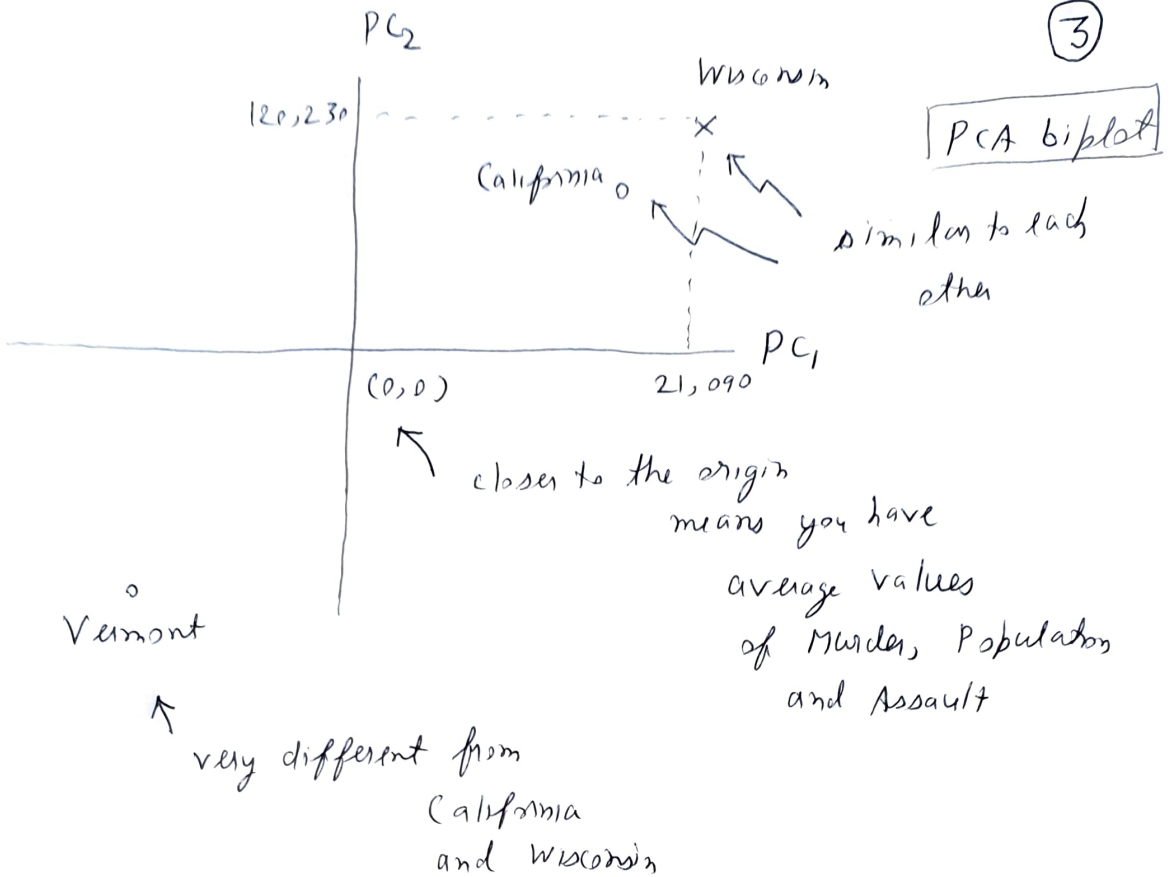 3
PC2
Wisconsin
120,230
PCA biplot
California
similar to each
other
PC1
(0,0)
21,090
closer to the origin
means you have
average values
of Murder, Population
and Assault
Vermont
very different from
California
and Wisconsin